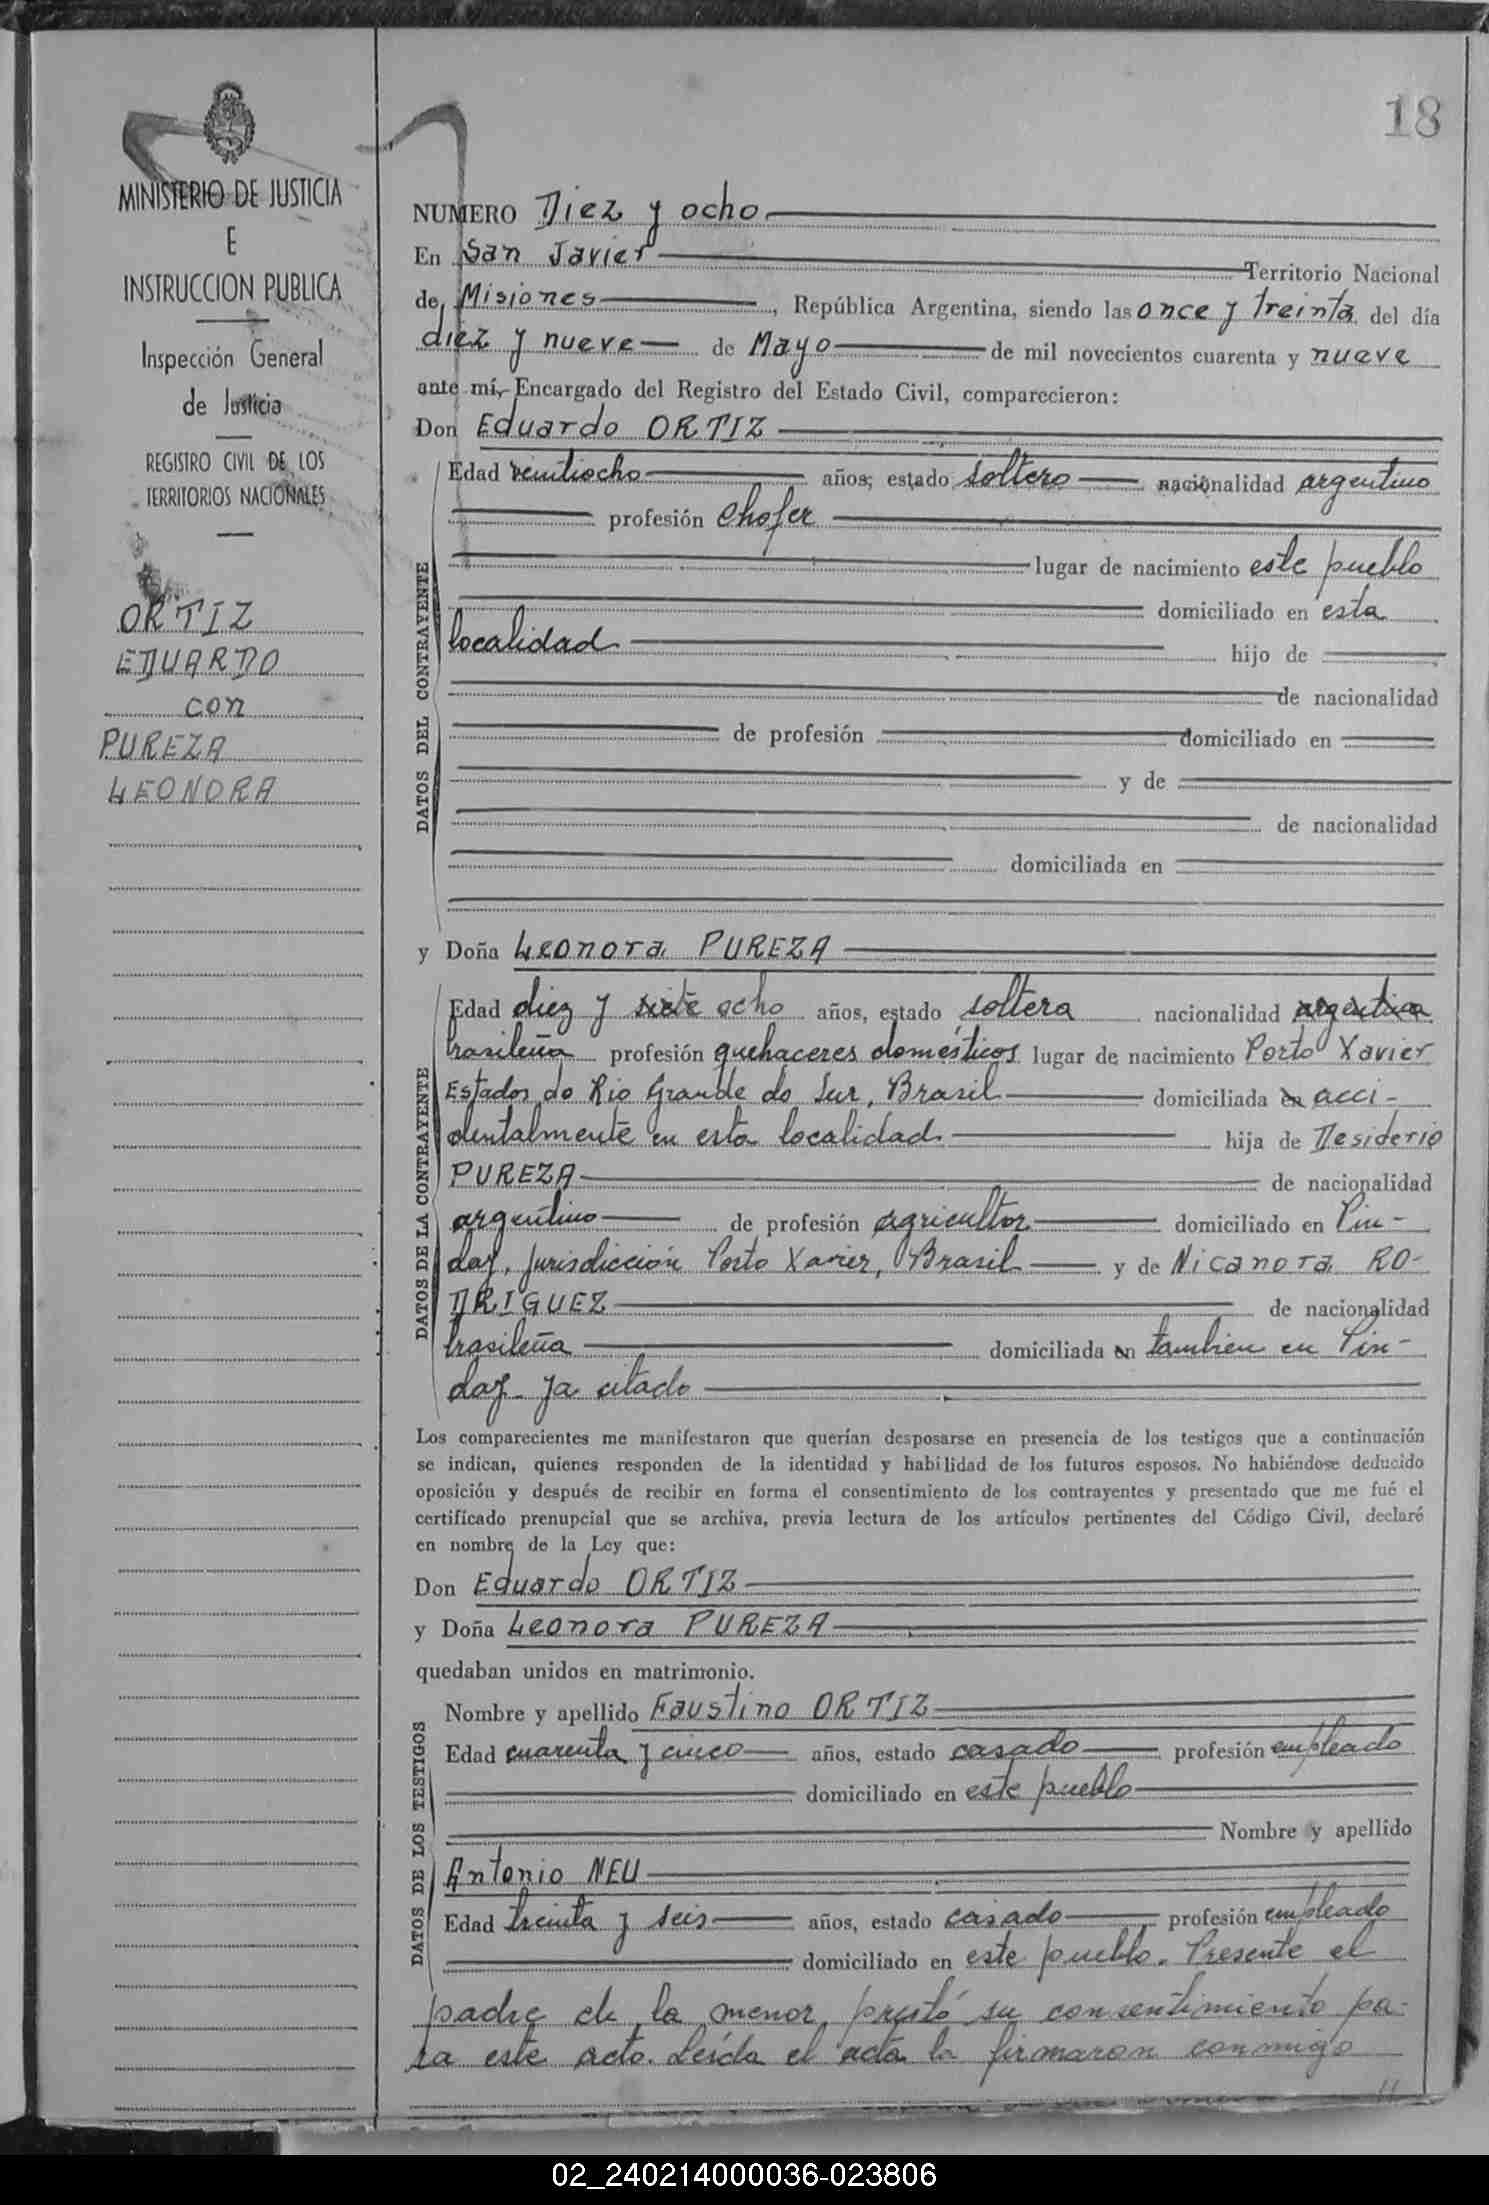 18
MINISTERIO DE JUSTICIA
E
INSTRUCCION PUBLICA
Inspección General
de Justicia
REGISTRO CIVIL DE LOS
TERRITORIOS NACIONALES
ORTIZ
EDUARDO
con
PUREZA
LEONORA
NUMERO Diez y ocho
En San Javier Territorio Nacional
de Misiones, República Argentina, siendo las once y treinta del día
diez y nueve de Mayo de mil novecientos cuarenta y nueve
ante mí, Encargado del Registro del Estado Civil, comparecieron:
Don Eduardo ORTIZ
DATOS DEL CONTRAYENTE
Edad veintiocho años, estado soltero nacionalidad argentino
profesión chofer
lugar de nacimiento este pueblo
domiciliado en esta
localidad hijo de
de nacionalidad
de profesión domiciliado en
y de
de nacionalidad
domiciliada en
y Doña Leonora PUREZA
DATOS DE LA CONTRAYENTE
Edad diez y siete ocho años, estado soltera nacionalidad argentina
brasileña profesión quehaceres domésticos lugar de nacimiento Porto Xavier
Estados do Rio Grande do Sur, Brasil domiciliada en acci-
dentalmente en esta localidad hija de Desiderio
PUREZA de nacionalidad
argentino de profesión agricultor domiciliado en Pin-
day, jurisdicción Porto Xavier, Brasil y de Nicanora RO-
DRIGUEZ de nacionalidad
brasileña domiciliada en tambien en Pin-
day ya citado
Los comparecientes me manifestaron que querían desposarse en presencia de los testigos que a continuación
se indican, quienes responden de la identidad y habilidad de los futuros esposos. No habiéndose deducido
oposición y después de recibir en forma el consentimiento de los contrayentes y presentado que me fué el
certificado prenupcial que se archiva, previa lectura de los artículos pertinentes del Código Civil, declaré
en nombre de la Ley que:
Don Eduardo ORTIZ
y Doña Leonora PUREZA
quedaban unidos en matrimonio.
DATOS DE LOS TESTIGOS
Nombre y apellido Faustino ORTIZ
Edad cuarenta y cinco años, estado casado profesión empleado
domiciliado en este pueblo
Nombre y apellido
Antonio NEU
Edad treinta y seis años, estado casado profesión empleado
domiciliado en este pueblo. Presente el
padre de la menor, prestó su consentimiento pa-
ra este acto. Leída el acta la firmaron conmigo
02_240214000036-023806